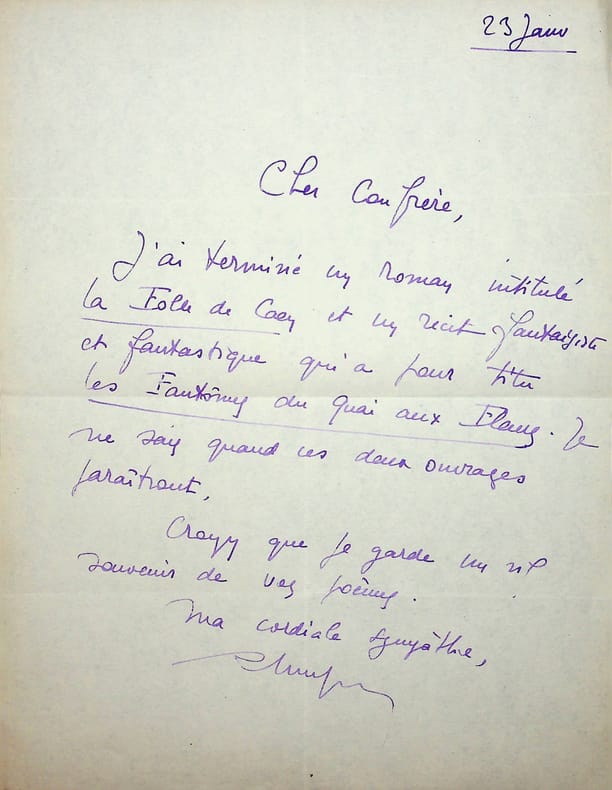 23 Janv
Cher Confrère,
J'ai terminé un roman intitulé
la Folle de et un récit fantaisiste
et fantastique qui a pour titre
les Fantômes du Quai aux Flans. Je
ne sais quand ces deux ouvrages
paraîtront.
Croyez que je garde un vif
souvenir de vos poèmes.
Ma cordiale sympathie,